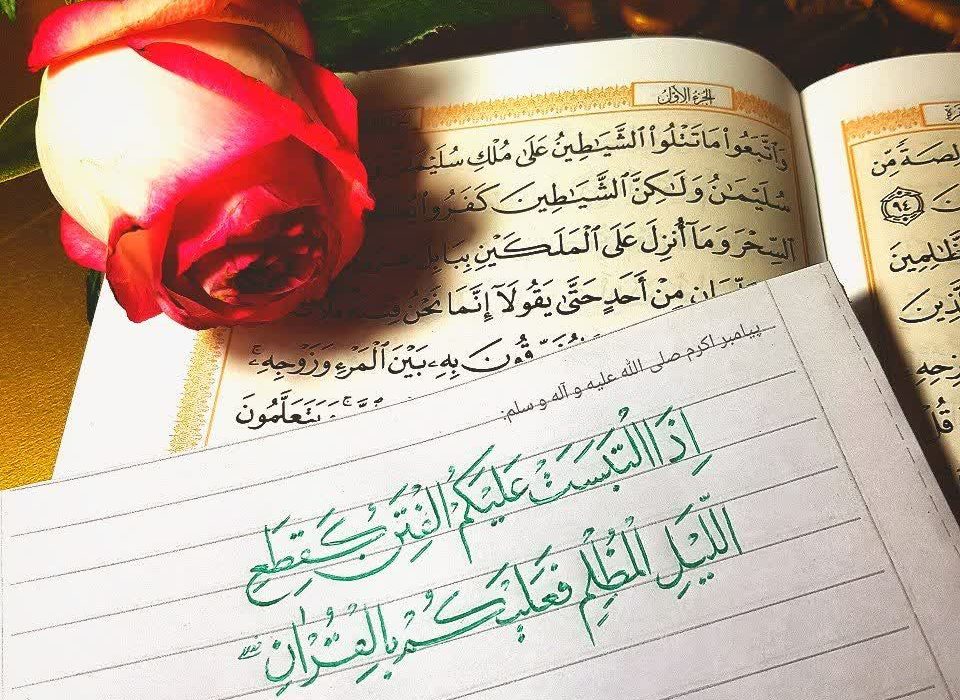 الجزء الاول
وَٱتَّبَعُوا۟ مَا تَتْلُوا۟ ٱلشَّيَٰطِينُ عَلَىٰ مُلْكِ
سُلَيْمَٰنُ وَلَٰكِنَّ ٱلشَّيَٰطِينَ كَفَرُوا۟
ٱلسِّحْرَ وَمَآ أُنزِلَ عَلَى ٱلْمَلَكَيْنِ بِبَابِلَ
مِنْ أَحَدٍ حَتَّىٰ يَقُولَآ إِنَّمَا نَحْنُ
بِهِۦ بَيْنَ ٱلْمَرْءِ وَزَوْجِهِۦ ۚ
وَيَتَعَلَّمُونَ
پیامبر اکرم صلی الله علیه و آله و سلم:
اِذَا الْتَبَسَتْ عَلَیْکُمُ الْفِتَنُ کَقِطَعِ
اللَّیْلِ الْمُظْلِمِ فَعَلَیْکُمْ بِالْقُرْآنِ
٩٤